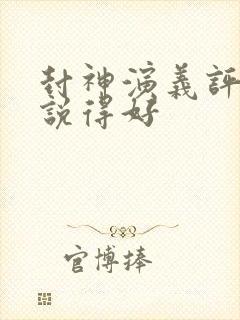 封神演義評
說得好
官博捧